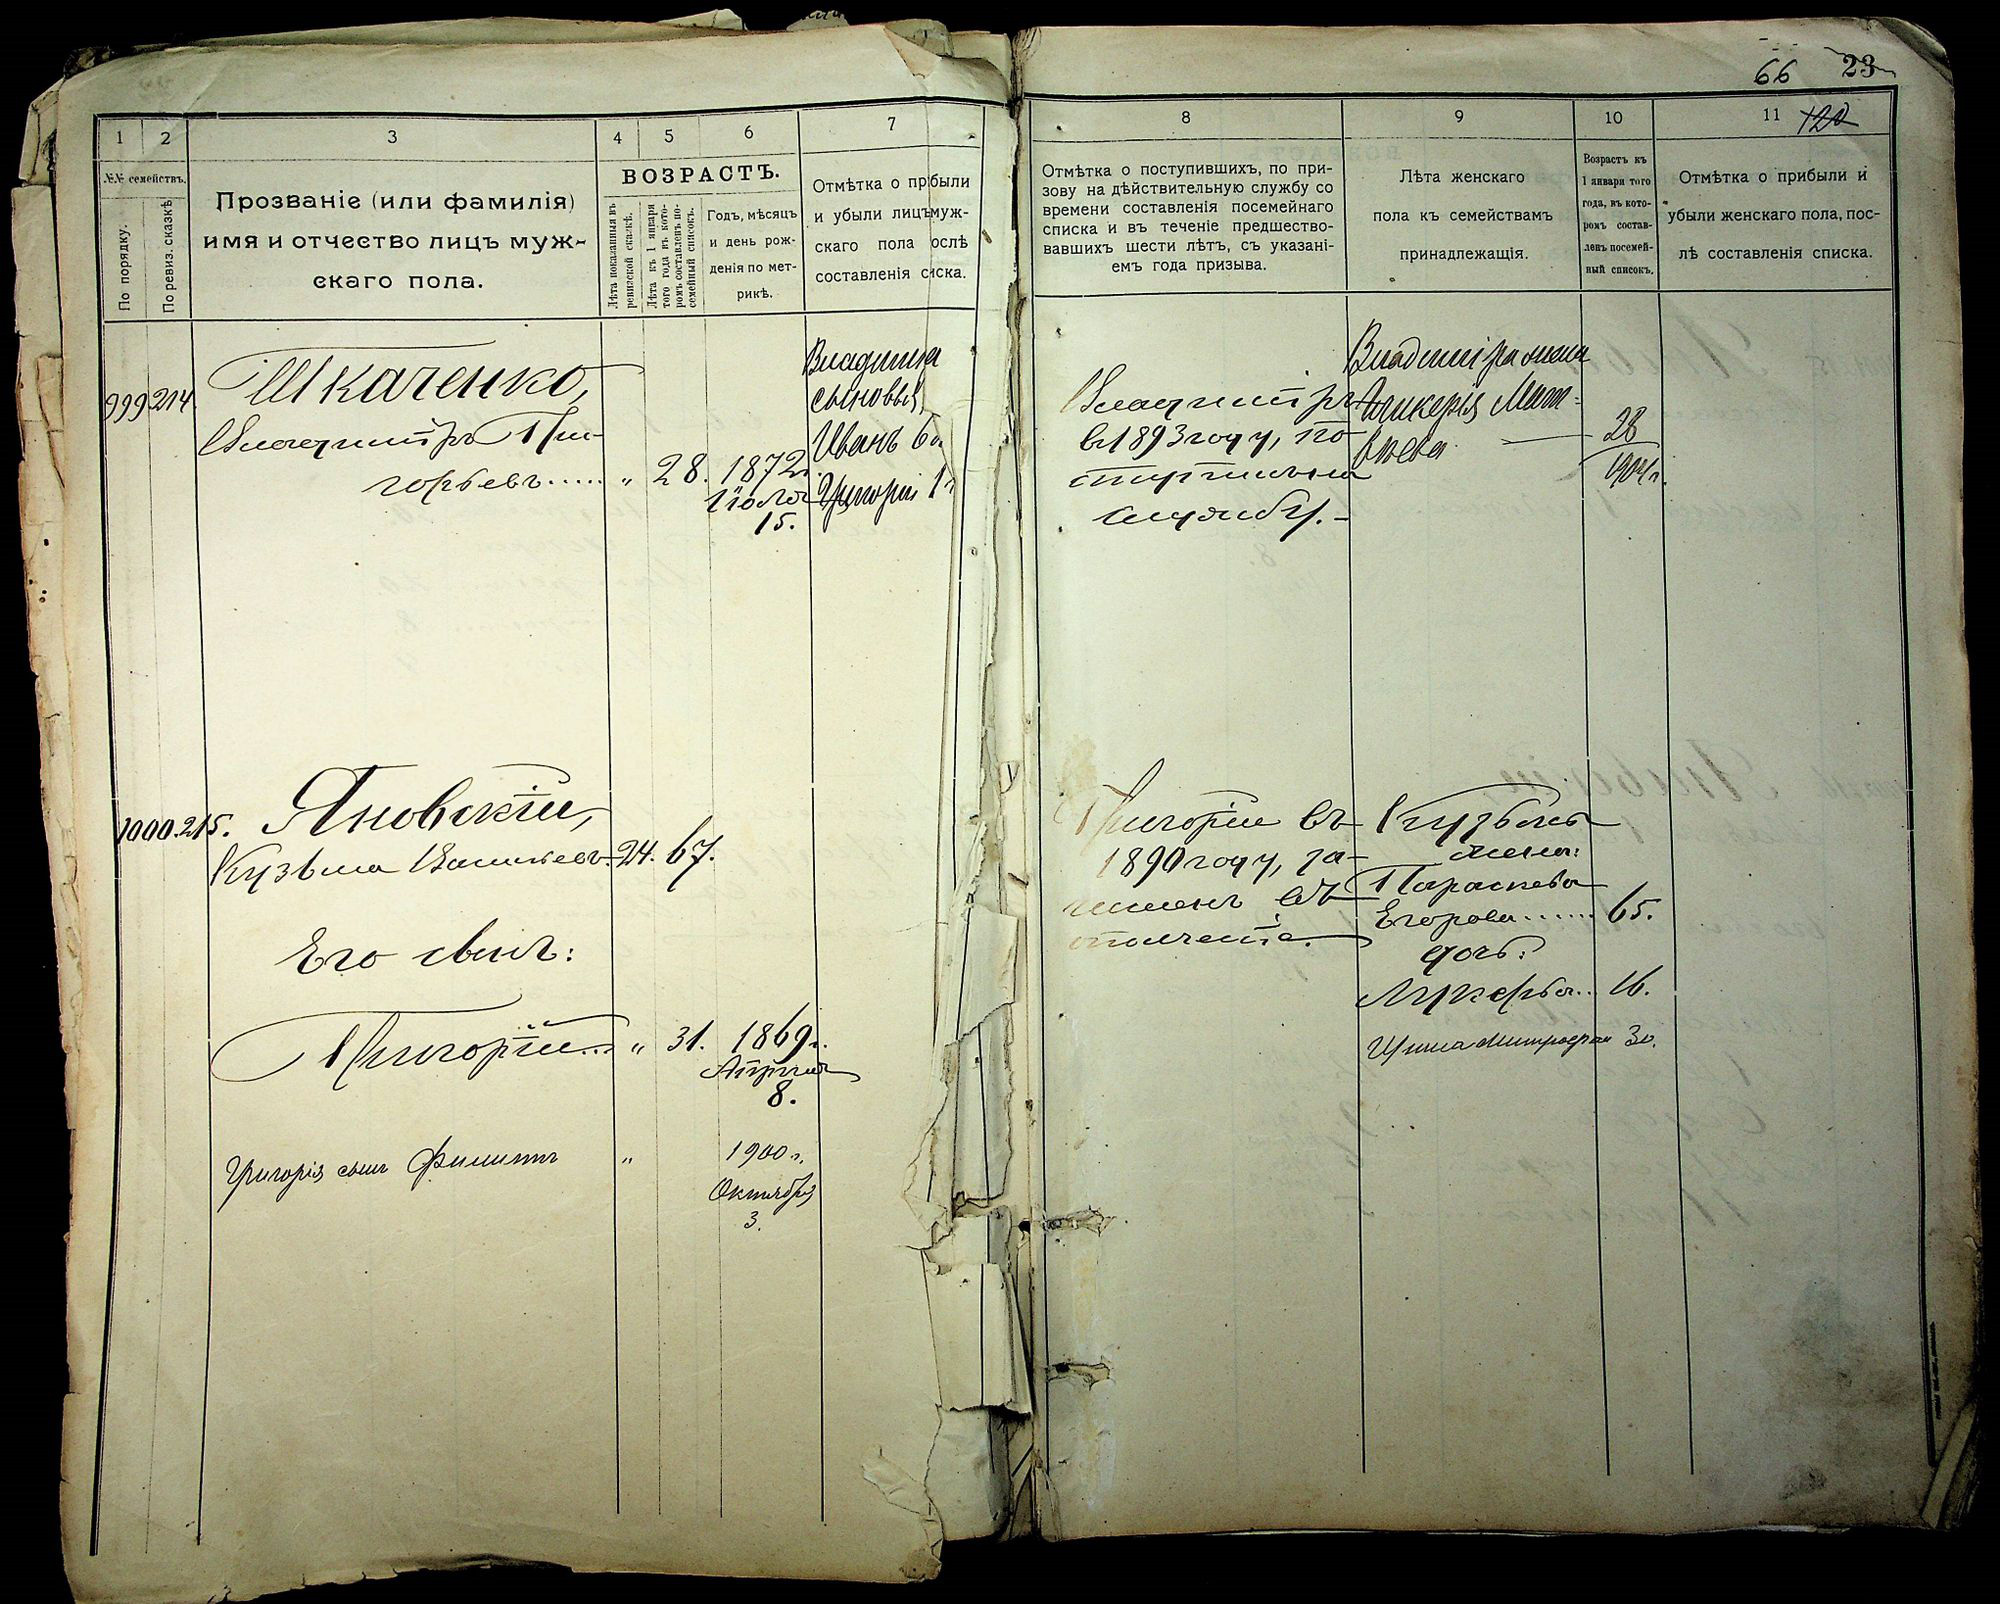 66 23
1 2 3 4 5 6 7
№№ семействъ.
По порядку.
По ревиз. сказкѣ
Прозваніе (или фамилія)
имя и отчество лицъ муж-
скаго пола.
ВОЗРАСТЪ.
Лѣта показанныя въ
ревизской сказкѣ.
Лѣта къ 1 января
того года въ кото-
ромъ составленъ по-
семейный списокъ.
Годъ, мѣсяцъ
и день рож-
денія по мет-
рикѣ.
Отмѣтка о прибыли
и убыли лицъ муж-
скаго пола послѣ
составленія списка.
999 214.
Шкаченко,
Владиміръ Гри-
горьевъ..... " 28. 1872 г.
Іюля
15.
Владиміра
сыновья,
Иванъ 6 л.
Григорій 1 г.
1000. 215.
Яновскій,
Кузьма Васильевъ. 24. 67.
Его сынъ:
Григорій... " 31. 1869 г.
Апрѣля
8.
Григорія сынъ Филиппъ " 1900 г.
Октября
3.
8 9 10 11 120
Отмѣтка о поступившихъ, по при-
зову на дѣйствительную службу со
времени составленія посемейнаго
списка и въ теченіе предшество-
вавшихъ шести лѣтъ, съ указані-
емъ года призыва.
Лѣта женскаго
пола къ семействамъ
принадлежащія.
Возрастъ къ
1 января того
года, въ кото-
ромъ состав-
ленъ посемей-
ный списокъ.
Отмѣтка о прибыли и
убыли женскаго пола, пос-
лѣ составленія списка.
Владиміръ
въ 1893 году, по-
ступилъ на
службу.
Владиміра жена
Гликерія Мат-
вѣева 28
1904 г.
Григорій въ
1890 году, за-
численъ въ
ополченіе.
Кузьмы
жена:
Параскева
Егорова...... 65.
дочь:
Лукерья.. 16.
Ирина Митрофан 30.